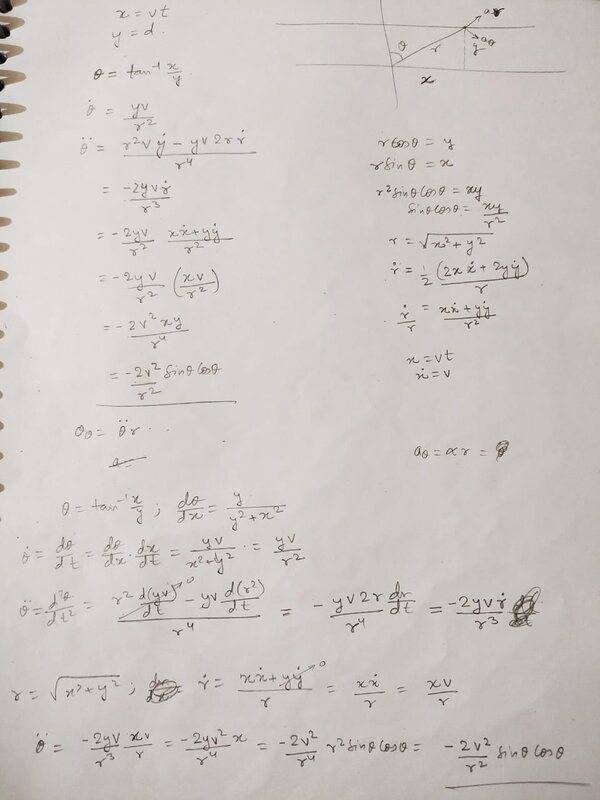 x = vt
y = d.
θ = tan⁻¹ x/y
θ̇ = yv/r²
θ̈ = (r²vẏ − yv2rṙ)/r⁴
= −2yvṙ/r³
= −2yv/r² (xẋ+yẏ)/r²
= −2yv/r² (xv/r²)
= −2v²xy/r⁴
= −2v²/r² sinθ cosθ
a_θ = θ̈r
a_r
a_θ
θ
r
y
x
r cosθ = y
r sinθ = x
r² sinθ cosθ = xy
sinθ cosθ = xy/r²
r = √(x²+y²)
ṙ = 1/2 (2xẋ + 2yẏ)/r
ṙ/r = (xẋ+yẏ)/r²
x = vt
ẋ = v
a_θ = αr =
θ = tan⁻¹ x/y ; dθ/dx = y/(y²+x²)
θ̇ = dθ/dt = dθ/dx · dx/dt = yv/(x²+y²) = yv/r²
θ̈ = d²θ/dt² = (r² d(yv)/dt → 0 − yv d(r²)/dt)/r⁴ = −yv2r/r⁴ dr/dt = −2yvṙ/r³
r = √(x²+y²) ; ṙ = (xẋ + yẏ → 0)/r = xẋ/r = xv/r
θ̈ = −2yv/r³ xv/r = −2yv²x/r⁴ = −2v²/r⁴ r² sinθ cosθ = −2v²/r² sinθ cosθ